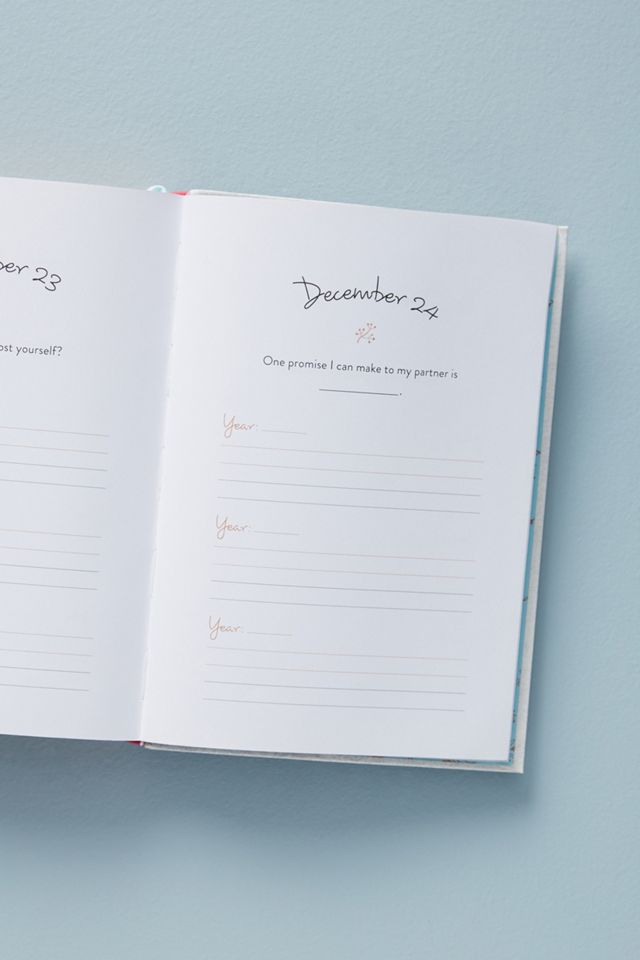 23
yourself?
December 24
One promise I can make to my partner is
.
Year:
Year:
Year: